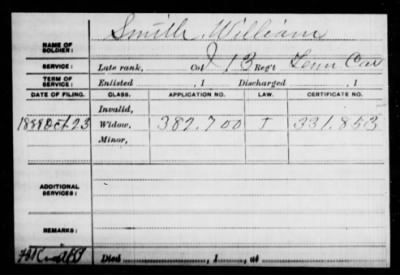 Smith, William
NAME OF SOLDIER:
SERVICE: Late rank, Co. I 13 Reg't Tenn Cav
TERM OF SERVICE: Enlisted , 1 Discharged , 1
DATE OF FILING. CLASS. APPLICATION NO. LAW. CERTIFICATE NO.
Invalid,
1888 Oct. 23 Widow, 382.700 T 331.853
Minor,
ADDITIONAL SERVICES:
REMARKS:
Died , 1 , at